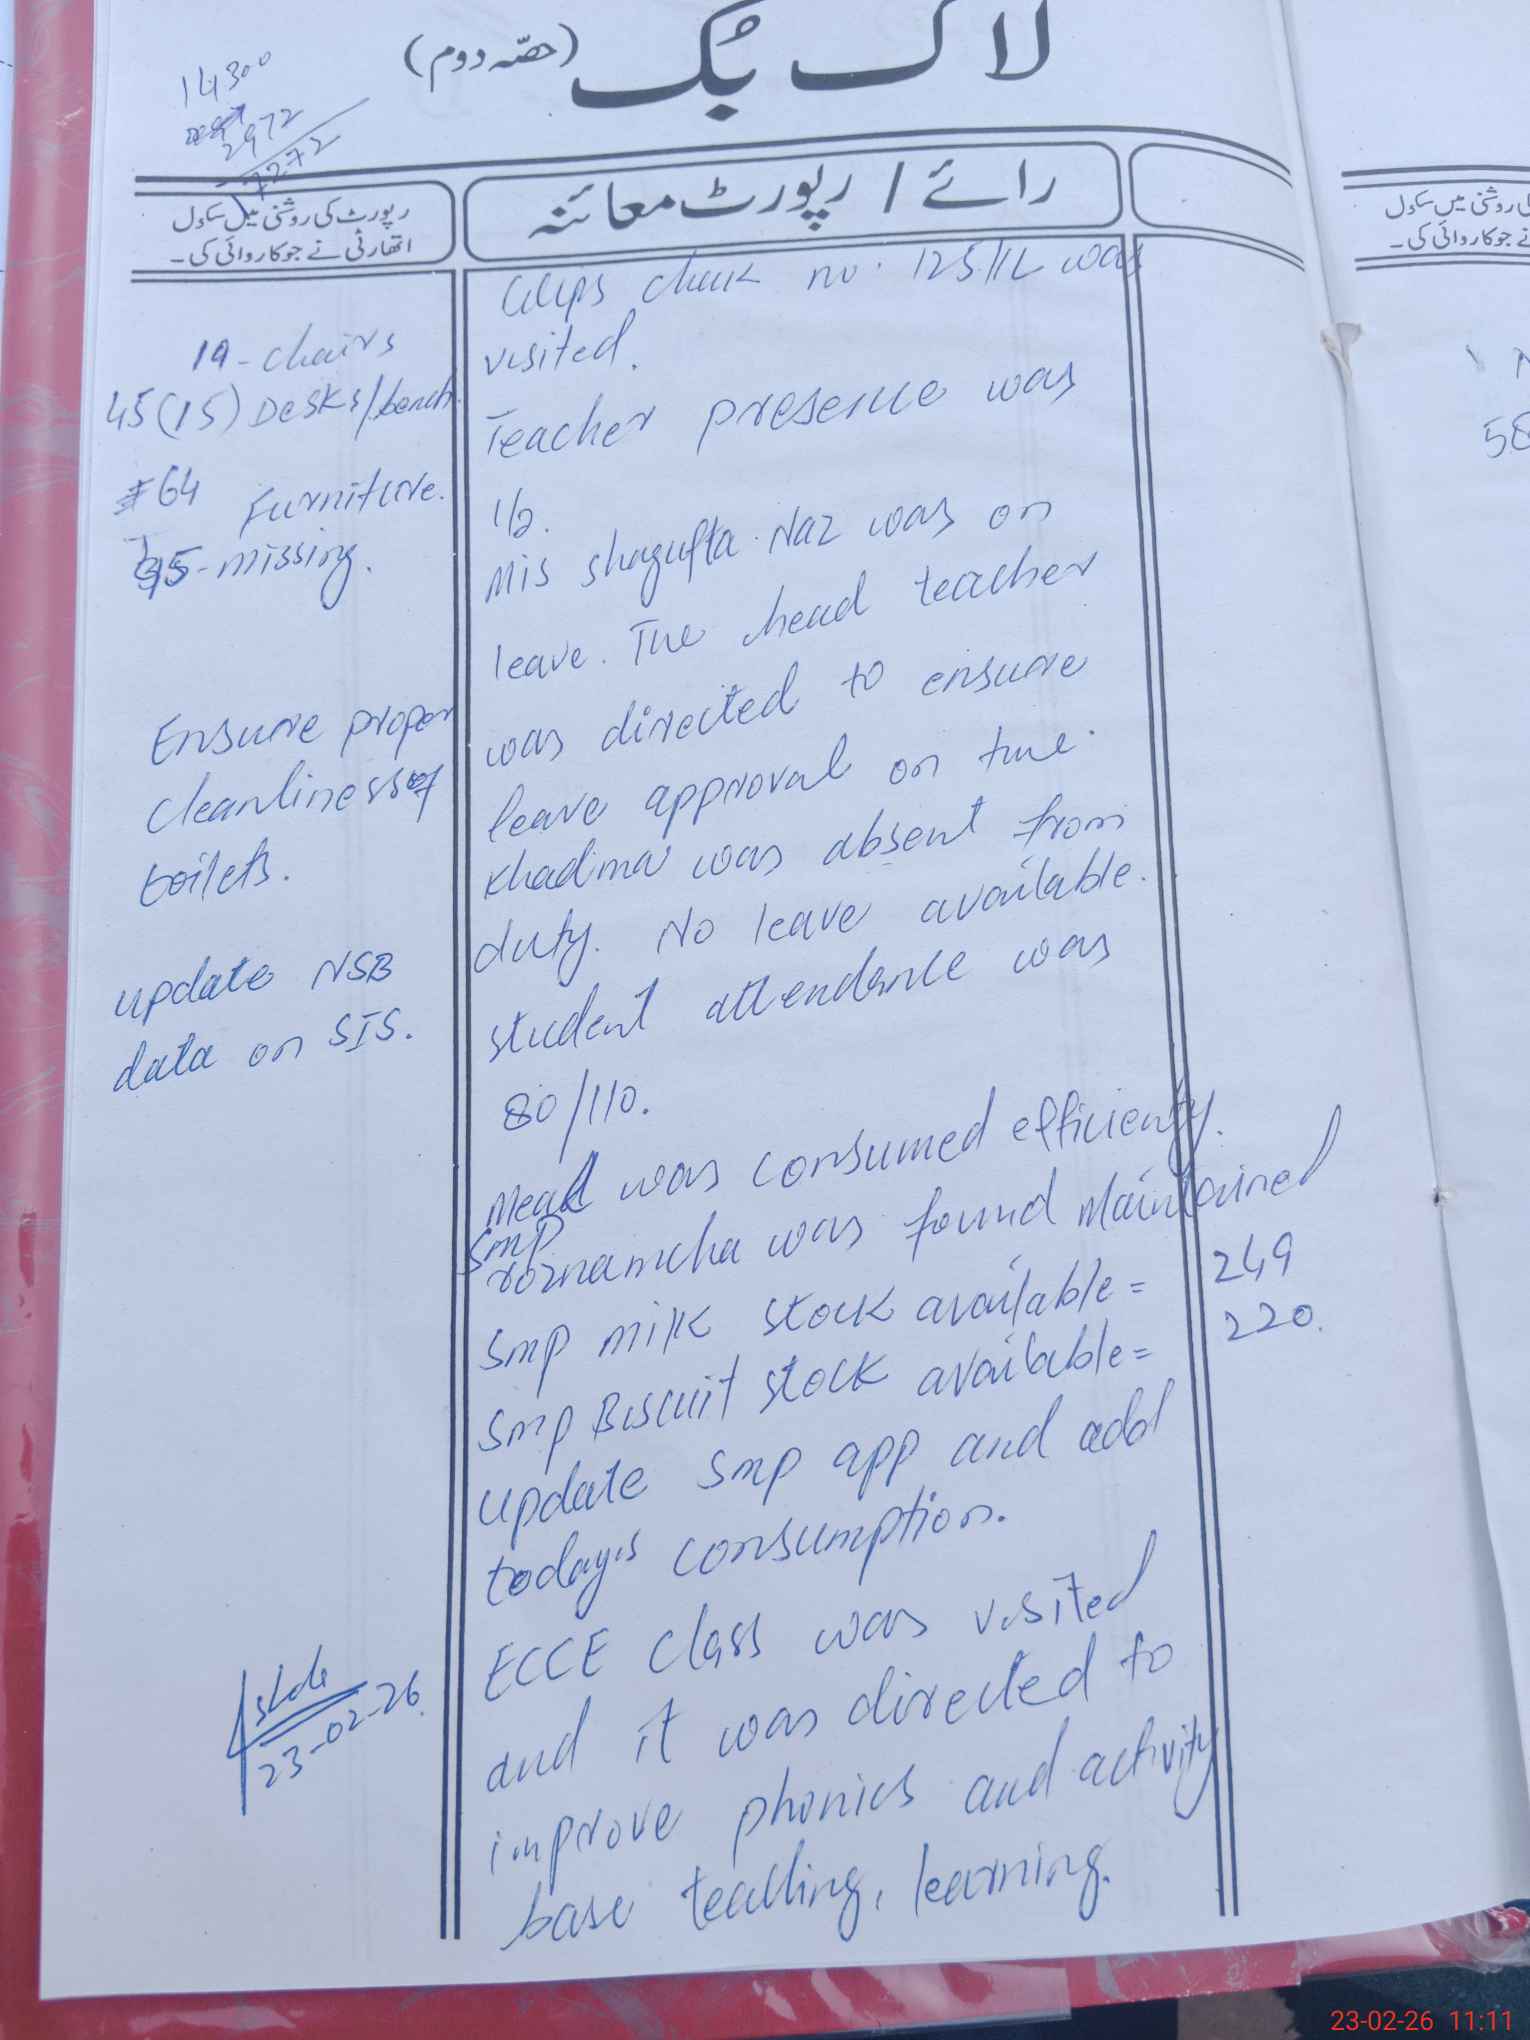 لاگ بُک (حصّہ دوم)
14300
2972
17272
رپورٹ کی روشنی میں سکول
اتھارٹی نے جو کاروائی کی۔
رائے / رپورٹ معائنہ
ی روشنی میں سکول
نے جو کاروائی کی۔
19-chairs
45(15) Desks/bench.
64 Furniture.
missing.
Ensure proper
cleanliness of
toilets.
update NSB
data on SIS.
23-02-26.
GGPS chak no. 125/1L was
visited.
Teacher presence was
1/2.
Mis shagufta Naz was on
leave. The head teacher
was directed to ensure
leave approval on time.
Khadma was absent from
duty. No leave available.
student attendance was
80/110.
Meal was consumed efficiently.
SMP
roznamcha was found Maintained
SMP milk stock available = 249
SMP Biscuit stock available = 220.
update SMP app and add
today's consumption.
ECCE class was visited
and it was directed to
improve phonics and activity
base teaching, learning.
58
23-02-26 11:11